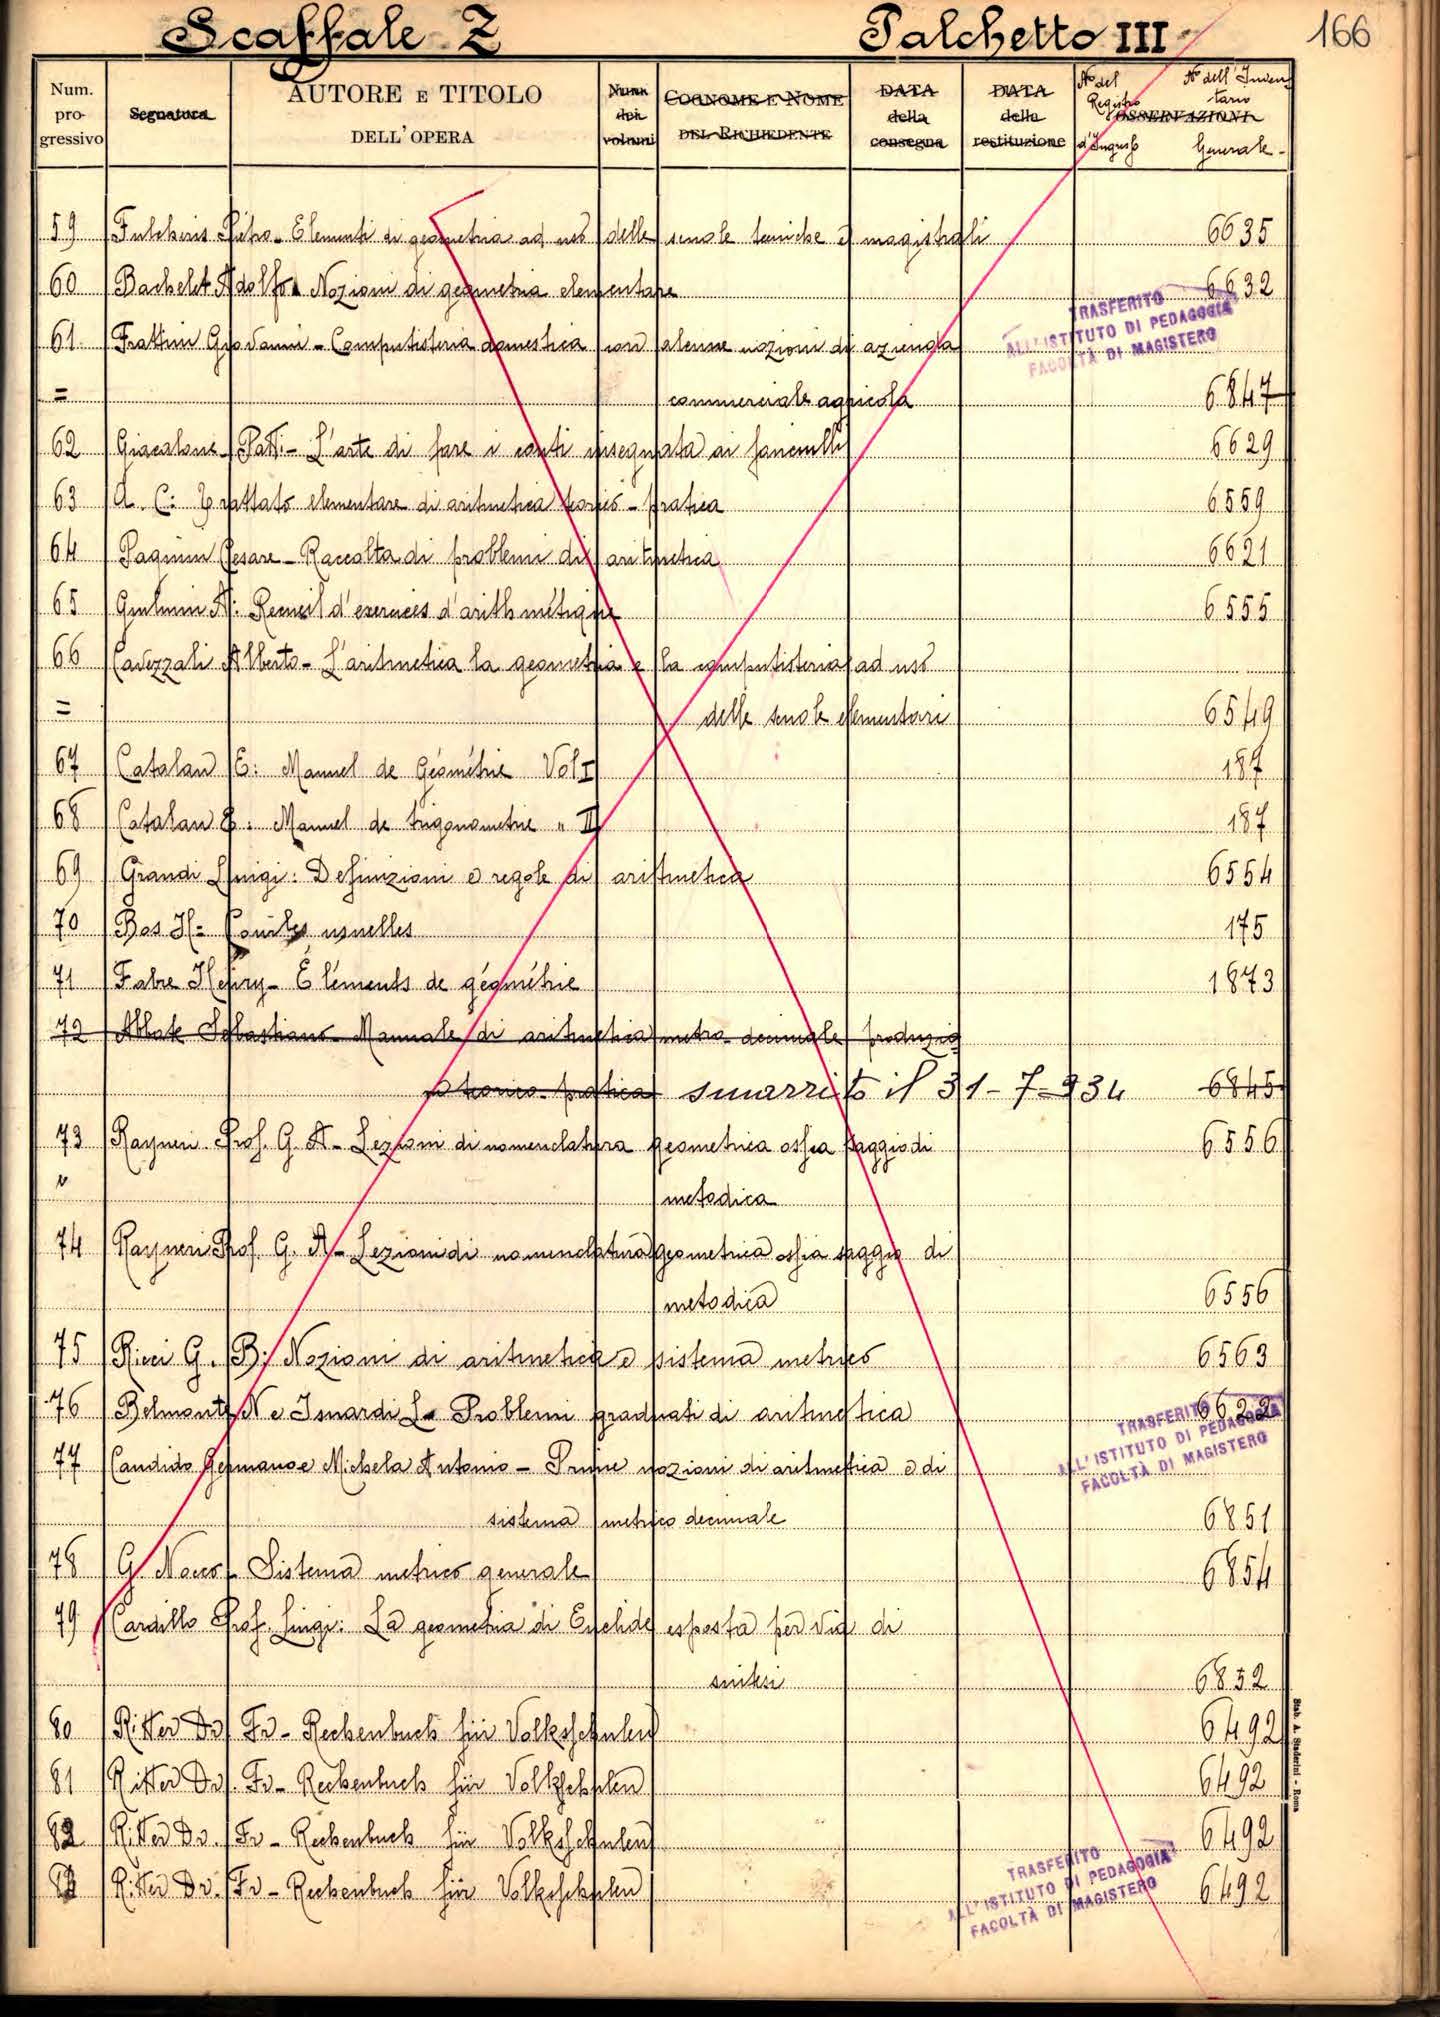 Scaffale Z Palchetto III 166
Num. progressivo Segnatura AUTORE E TITOLO DELL'OPERA Num. dei volumi COGNOME E NOME DEL RICHIEDENTE DATA della consegna DATA della restituzione OSSERVAZIONI No del Registro d'Ingresso No dell'Inventario Generale
59 Fulcheris Pietro - Elementi di geometria ad uso delle scuole tecniche e magistrali 6635
60 Bachelet Adolfo Nozioni di geometria elementare 6632
TRASFERITO
ALL'ISTITUTO DI PEDAGOGIA
FACOLTÀ DI MAGISTERO
61 Frattini Giovanni - Computisteria domestica con alcune nozioni di azienda
= commerciale agricola 6847
62 Giacalone - Patti - L'arte di fare i conti insegnata ai fanciulli 6629
63 A. C: Trattato elementare di aritmetica teorico - pratica 6559
64 Pagnini Cesare - Raccolta di problemi di aritmetica 6621
65 Guilmin A: Recueil d'exercices d'arithmétique 6555
66 Cavezzali Alberto - L'aritmetica la geometria e la computisteria ad uso
= delle scuole elementari 6549
67 Catalan E: Manuel de Géométrie Vol I 187
68 Catalan E: Manuel de trigonometrie " II 187
69 Grandi Luigi: Definizioni e regole di aritmetica 6554
70 Bos H= usuelles 175
71 Fabre Henry - Éléments de géométrie 1873
72 Abbate Sebastiano Manuale di aritmetica metro decimale
teorico-pratica smarrito il 31-7-934 6845
73 Rayneri Prof. G. A - Lezioni di nomenclatura geometrica ossia saggio di 6556
" metodica
74 Rayneri Prof. G. A - Lezioni di nomenclatura geometrica ossia saggio di
metodica 6556
75 Ricci G. B: Nozioni di aritmetica e sistema metrico 6563
76 Belmonte N e Isnardi L - Problemi graduati di aritmetica 6622
TRASFERITO
ALL'ISTITUTO DI PEDAGOGIA
FACOLTÀ DI MAGISTERO
77 Candido Germano e Michela Antonio - Prime nozioni di aritmetica e di
sistema metrico decimale 6851
78 G. Nocco - Sistema metrico generale 6854
79 Cardillo Prof. Luigi: La geometria di Euclide esposta per via di
sintesi 6852
80 Ritter Dr Fr - Rechenbuch für Volksschulen 6492
81 Ritter Dr. Fr - Rechenbuch für Volksschulen 6492
82 Ritter Dr. Fr - Rechenbuch für Volksschulen 6492
83 Ritter Dr. Fr - Rechenbuch für Volksschulen 6492
TRASFERITO
ALL'ISTITUTO DI PEDAGOGIA
FACOLTÀ DI MAGISTERO
Stab. A. Staderini - Roma